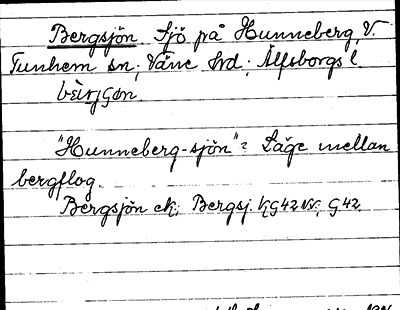 Bergsjön Sjö på Hunneberg, V.
Tunhem sn; Väne hd; Älfsborgs l.
"Hunneberg-sjön"? Läge mellan
bergflog.
Bergsjön ek; Bergsj. KG42NV; G42.